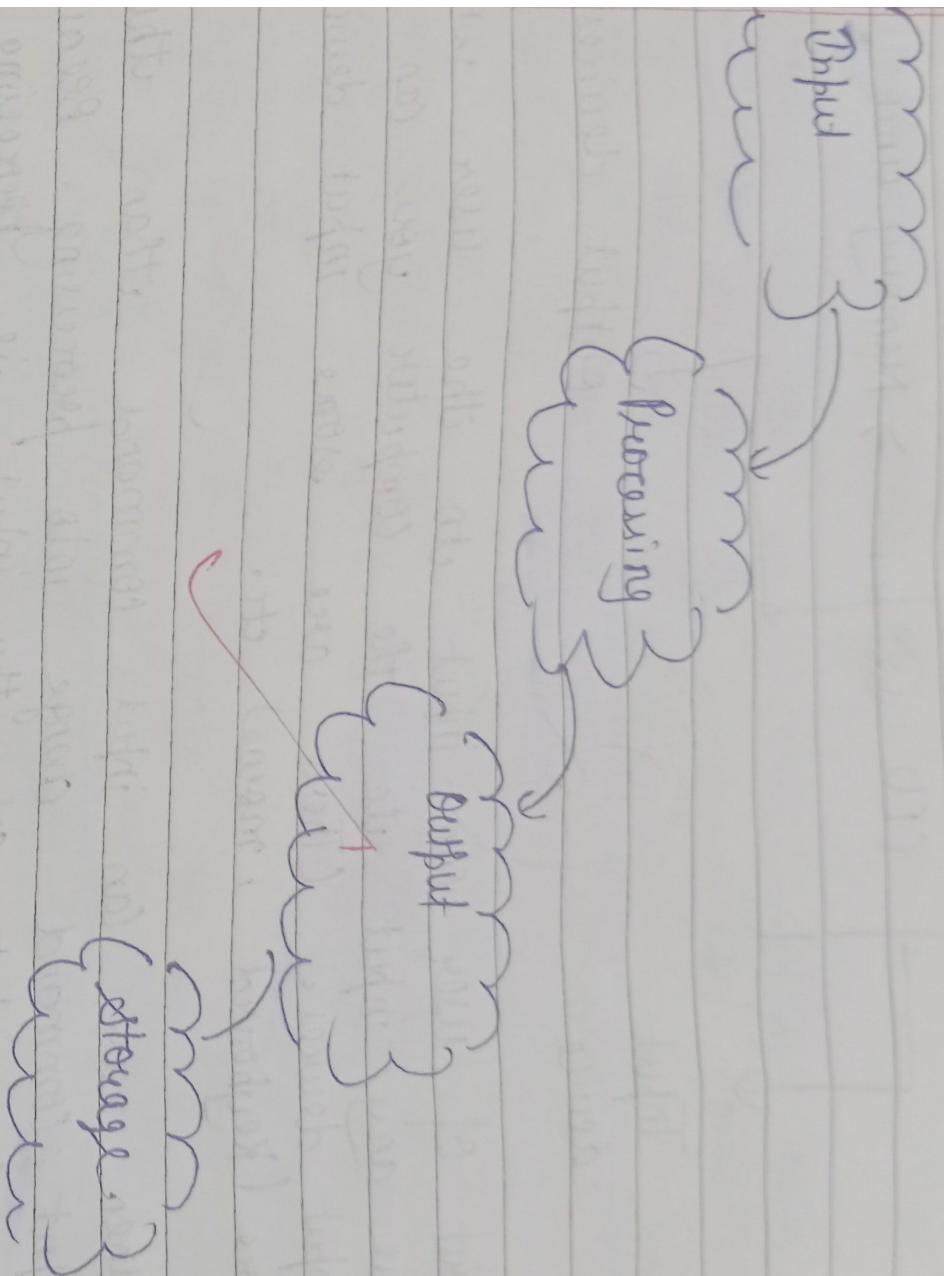 Input
Processing
Output
Storage